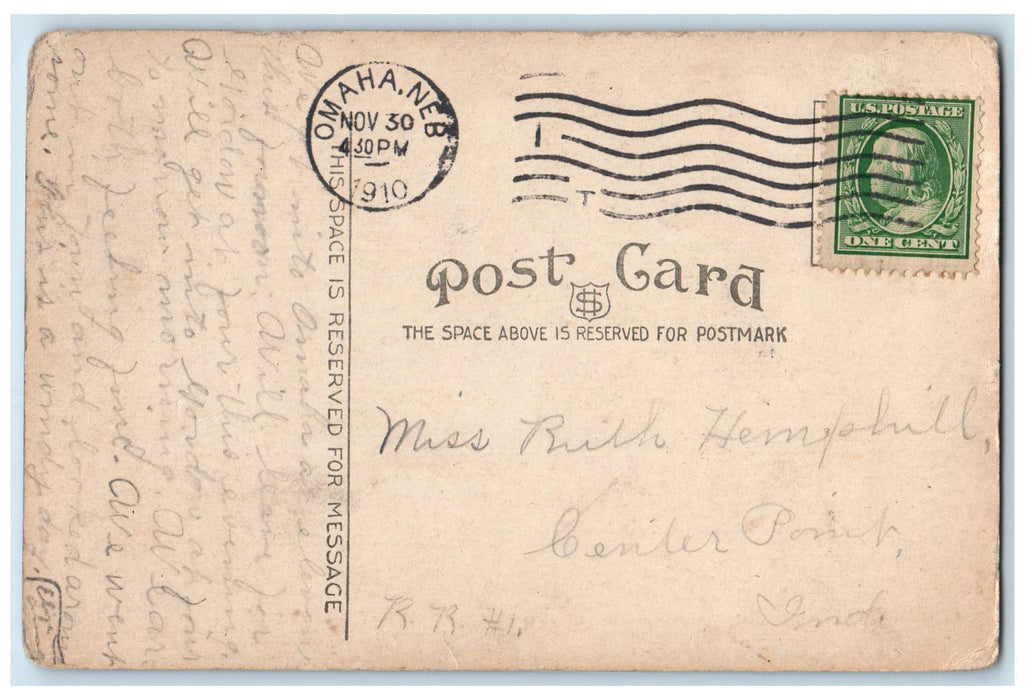 OMAHA, NEB
NOV 30
4 30 PM
1910
I
T
U.S. POSTAGE
ONE CENT
Post Card
THE SPACE ABOVE IS RESERVED FOR POSTMARK
THIS SPACE IS RESERVED FOR MESSAGE
Miss Ruth Hemphill,
Center Point,
R. R. #1.
Ind.
We got into Omaha at eleven
this forenoon. Will leave for
Gordon at four this evening.
Will get into Gordon at four
to-morrow morning. We are
both feeling fine. We went
out in town and looked around
some. This is a windy day.